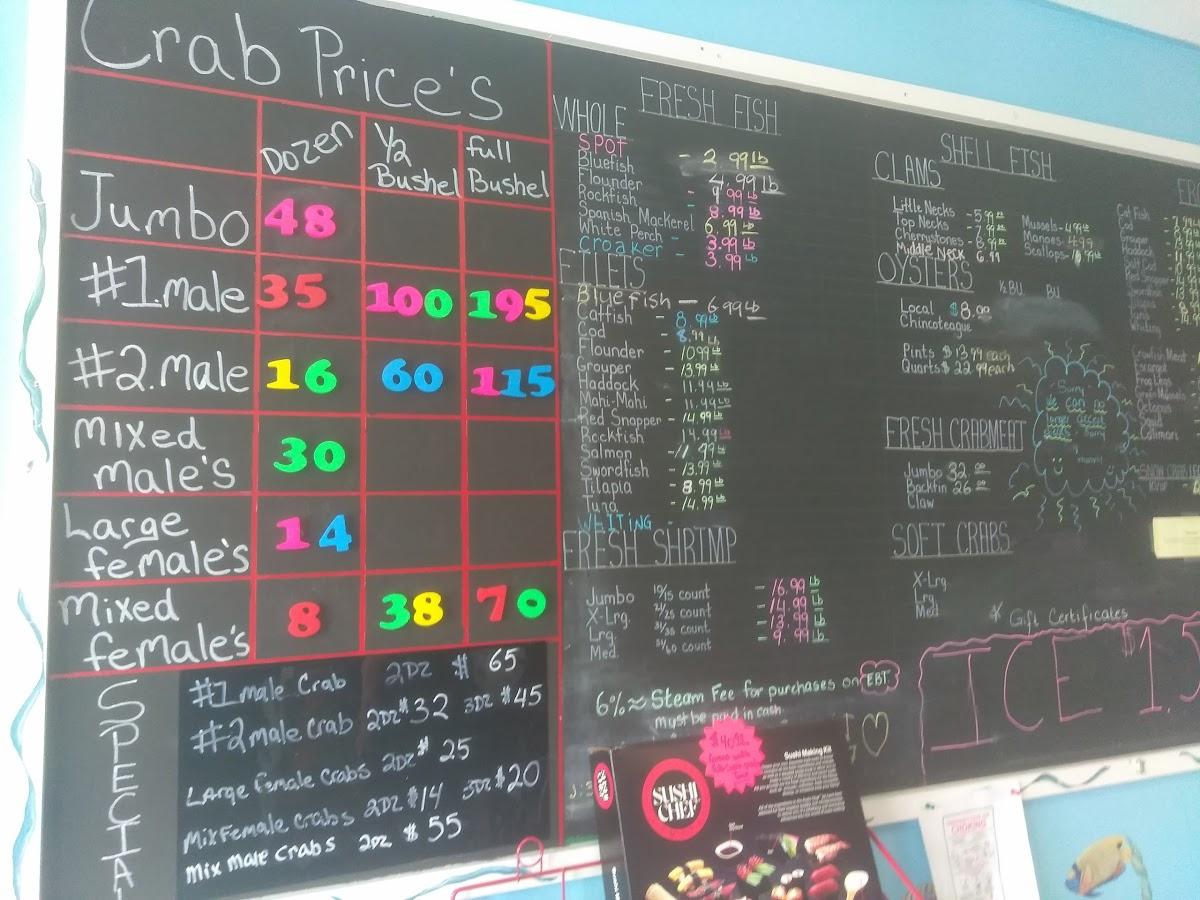 Crab Price's
Dozen ½ Bushel full Bushel
Jumbo 48
#1.male 35 100 195
#2.male 16 60 115
Mixed Male's 30
Large female's 14
Mixed female's 8 38 70
SPECIAL
#1 male Crab 2DZ $ 65
#2 male Crab 2DZ $32 3DZ $45
LArge female Crabs 2DZ $ 25
Mix Female Crabs 2DZ $14 3DZ $20
Mix Male Crabs 2DZ $ 55
FRESH FISH
WHOLE
SPOT
Bluefish - 2.99 lb
Flounder 4.99 lb
Rockfish - 9.99 lb
Spanish Mackerel - 8.99 lb
White Perch - 6.99 lb
Croaker - 3.99 lb
3.99 lb
FILETS
Blue Fish — 6.99 Lb
Catfish - 8.99 lb
Cod - 8.99 lb
Flounder - 10.99 lb
Grouper - 13.99 lb
Haddock - 11.99 lb
Mahi-Mahi - 11.99 lb
Red Snapper - 14.99 lb
Rockfish 14.99 lb
Salmon
Swordfish - 13.99 lb
Tilapia - 8.99 lb
Tuna - 14.99 lb
WHITING -
FRESH SHRIMP
Jumbo 10/15 count - 16.99 Lb
X-Lrg. 21/25 count - 14.99 Lb
Lrg. 31/35 count - 13.99 Lb
Med. count - 9.99 Lb
6% Steam Fee for purchases on EBT
must be paid in cash
SHELL FISH
CLAMS
Little Necks - 5.99
Top Necks - 7.99
Cherrystones - 6.99
Middle Neck 6.99
Mussels - 4.99
Manoes 4.99
Scallops -
OYSTERS
½ BU BU
Local $8.00
Chincoteague
Pints $13.99 each
Quarts $22.99 each
Sorry
We can no
longer accept
FRESH CRABMEAT
Jumbo 32.00
Backfin 26.00
Claw
SOFT CRABS
X-Lrg
Lrg
Med
* Gift Certificates
ICE $1.5
Cat Fish
Cod
Whiting
Crawfish Meat
Escargot
Frog Legs
Green Mussels
Octopus
Squid
Calimari
SUSHI CHEF
Sushi Making Kit